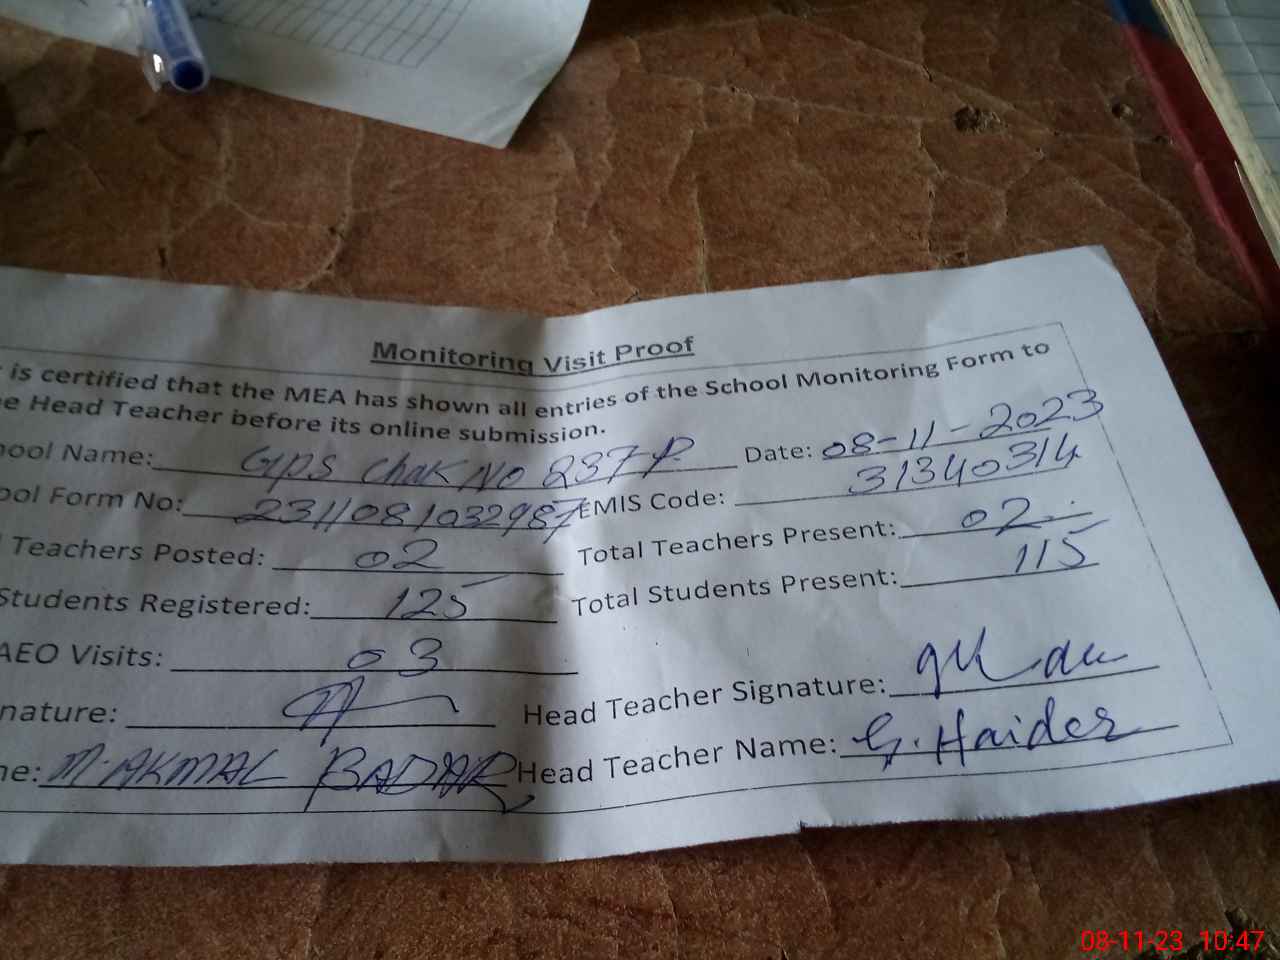 Monitoring Visit Proof
is certified that the MEA has shown all entries of the School Monitoring Form to
e Head Teacher before its online submission.
hool Name: GPS Chak No 237 P. Date: 08-11-2023
ool Form No: 231108103298 EMIS Code: 31340314
Teachers Posted: 02 Total Teachers Present: 02
Students Registered: 125 Total Students Present: 115
AEO Visits: 03
nature: Head Teacher Signature:
me: M. AKMAL BADAR Head Teacher Name: G. Haider
08-11-23 10:47